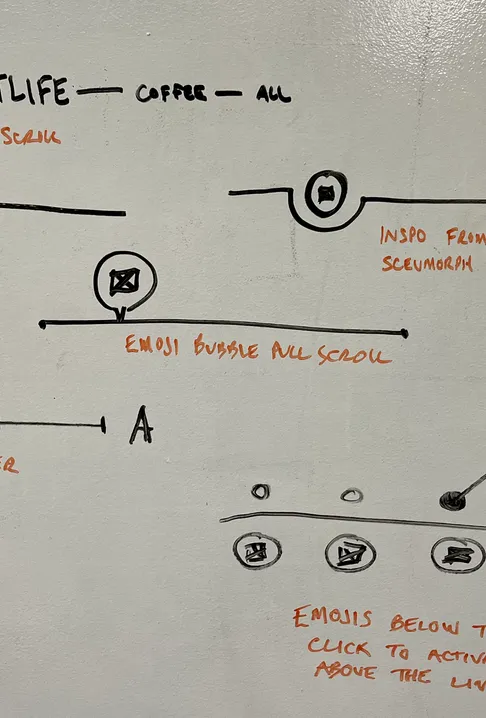 TLIFE — COFFEE — ALL
SCRLL
INSPO FROM
SCEUMORPH
EMOJI BUBBLE PULL SCROLL
A
ER
EMOJIS BELOW T
CLICK TO ACTIVA
ABOVE THE LIN